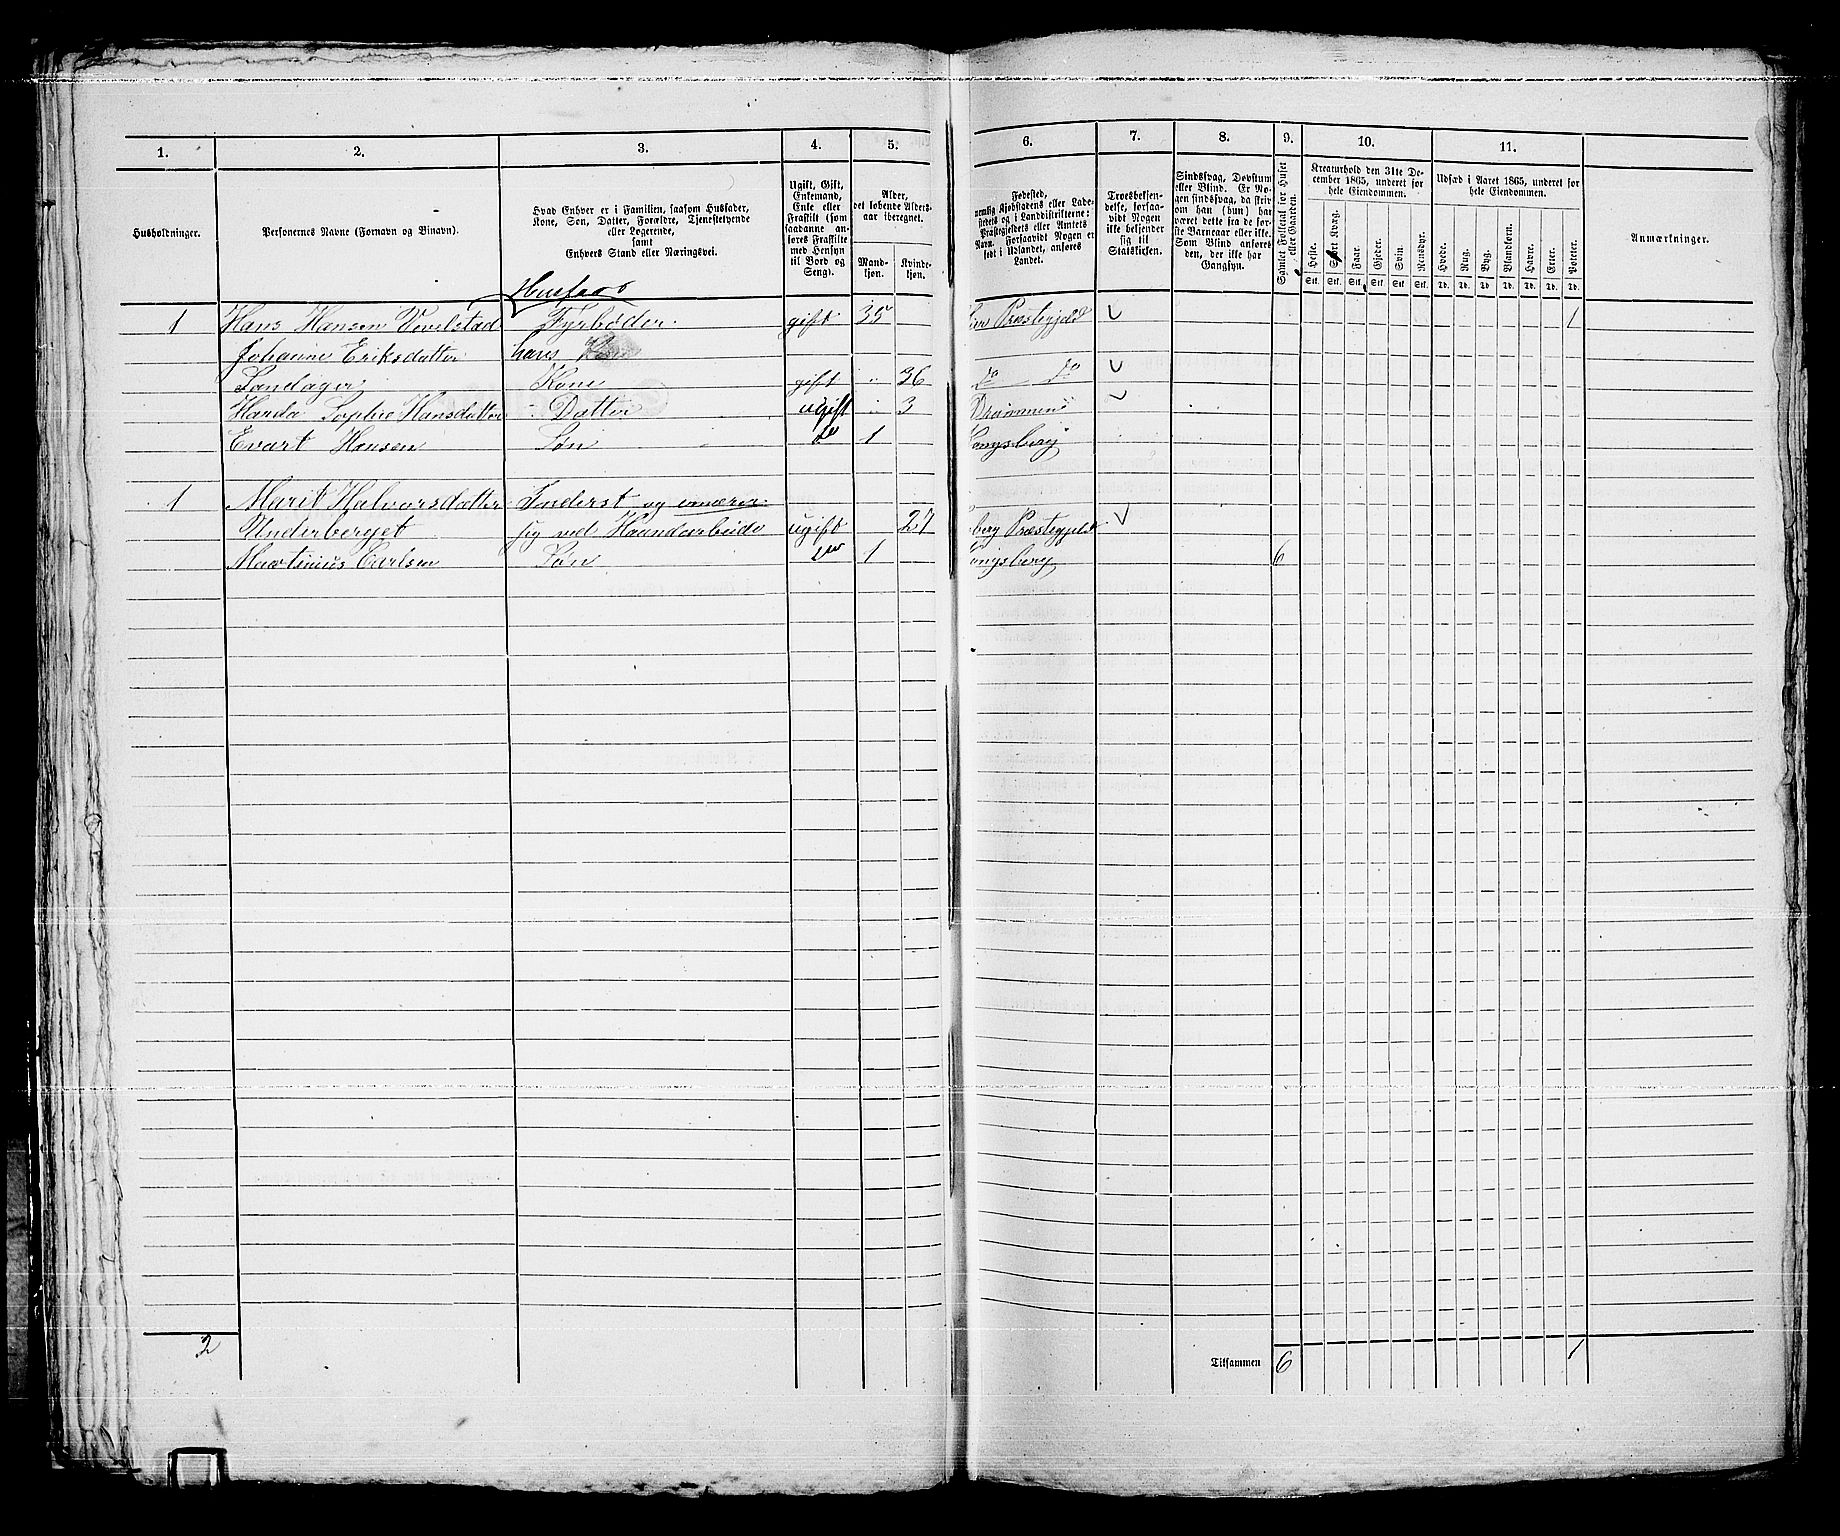 1. 2. 3. 4. 5. 6. 7. 8. 9. 10. 11.
Husholdninger.
Personernes Navne (Fornavn og Binavn).
Hvad Enhver er i Familien, saasom Husfader,
Kone, Søn, Datter, Forældre, Tjenestetyende
eller Logerende,
samt
Enhvers Stand eller Næringsvei.
Ugift, Gift,
Enkemand,
Enke eller
Fraskilt (som
saadanne an-
føres Fraskilte
med Hensyn
til Bord og
Seng).
Alder,
det løbende Alders-
aar iberegnet.
Mand-
kjøn.
Kvinde-
kjøn.
Fødested,
nemlig Kjøbstadens eller Lade-
stedets og i Landdistrikterne:
Præstegjeldets eller Amtets
Navn. Forsaavidt Nogen er
født i Udlandet, anføres
Landet.
Troesbekjen-
delse, forsaa-
vidt Nogen
ikke bekjender
sig til
Statskirken.
Sindssvag, Døvstum
eller Blind. Er No-
gen sindssvag, da skriv
om han (hun) har
været dette fra de før-
ste Barneaar eller ikke.
Som Blind anføres
den, der ikke har
Gangsyn.
Samlet Folketal for Huset
eller Gaarden.
Kreaturhold den 31te De-
cember 1865, underet for
hele Eiendommen.
Heste. Stort Kvæg. Faar. Gjeder. Svin. Rensdyr.
Stk. Stk. Stk. Stk. Stk. Stk.
Udsæd i Aaret 1865, underet for
hele Eiendommen.
Hvede. Rug. Byg. Blankorn. Havre. Erter. Poteter.
Td. Td. Td. Td. Td. Td. Td.
Anmærkninger.
Husfader
1 Hans Hansen Vevelstad Fyrbøder gift 35 Præstegjeld 1
Johanne Eriksdatter hans
Landager Kone gift " 36 do do
Harda Sophie Hansdatter Datter ugift " 3 Drammen
Evart Hansen Søn do 1 ongsberg
1 Marit Halvorsdatter Inderst og ernærer
Underberget sig ved Haandarbeide ugift 27 berg Præstegjeld
Martinius Carlsen Søn do 1 ongsberg 6
2 Tilsammen 6 1